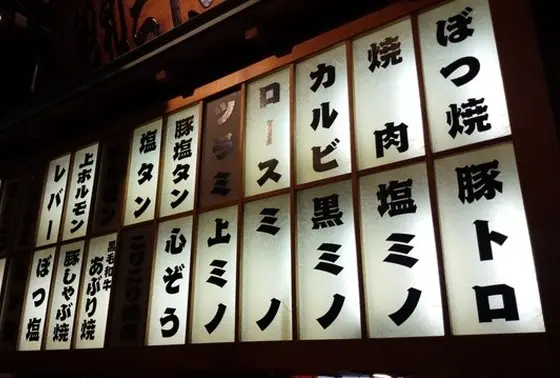 ぼつ焼
焼肉
カルビ
ロース
ツラミ
豚塩タン
塩タン
上ホルモン
レバー
豚トロ
塩ミノ
黒ミノ
ミノ
上ミノ
心ぞう
黒毛和牛
あぶり焼
豚しゃぶ焼
ぼつ塩